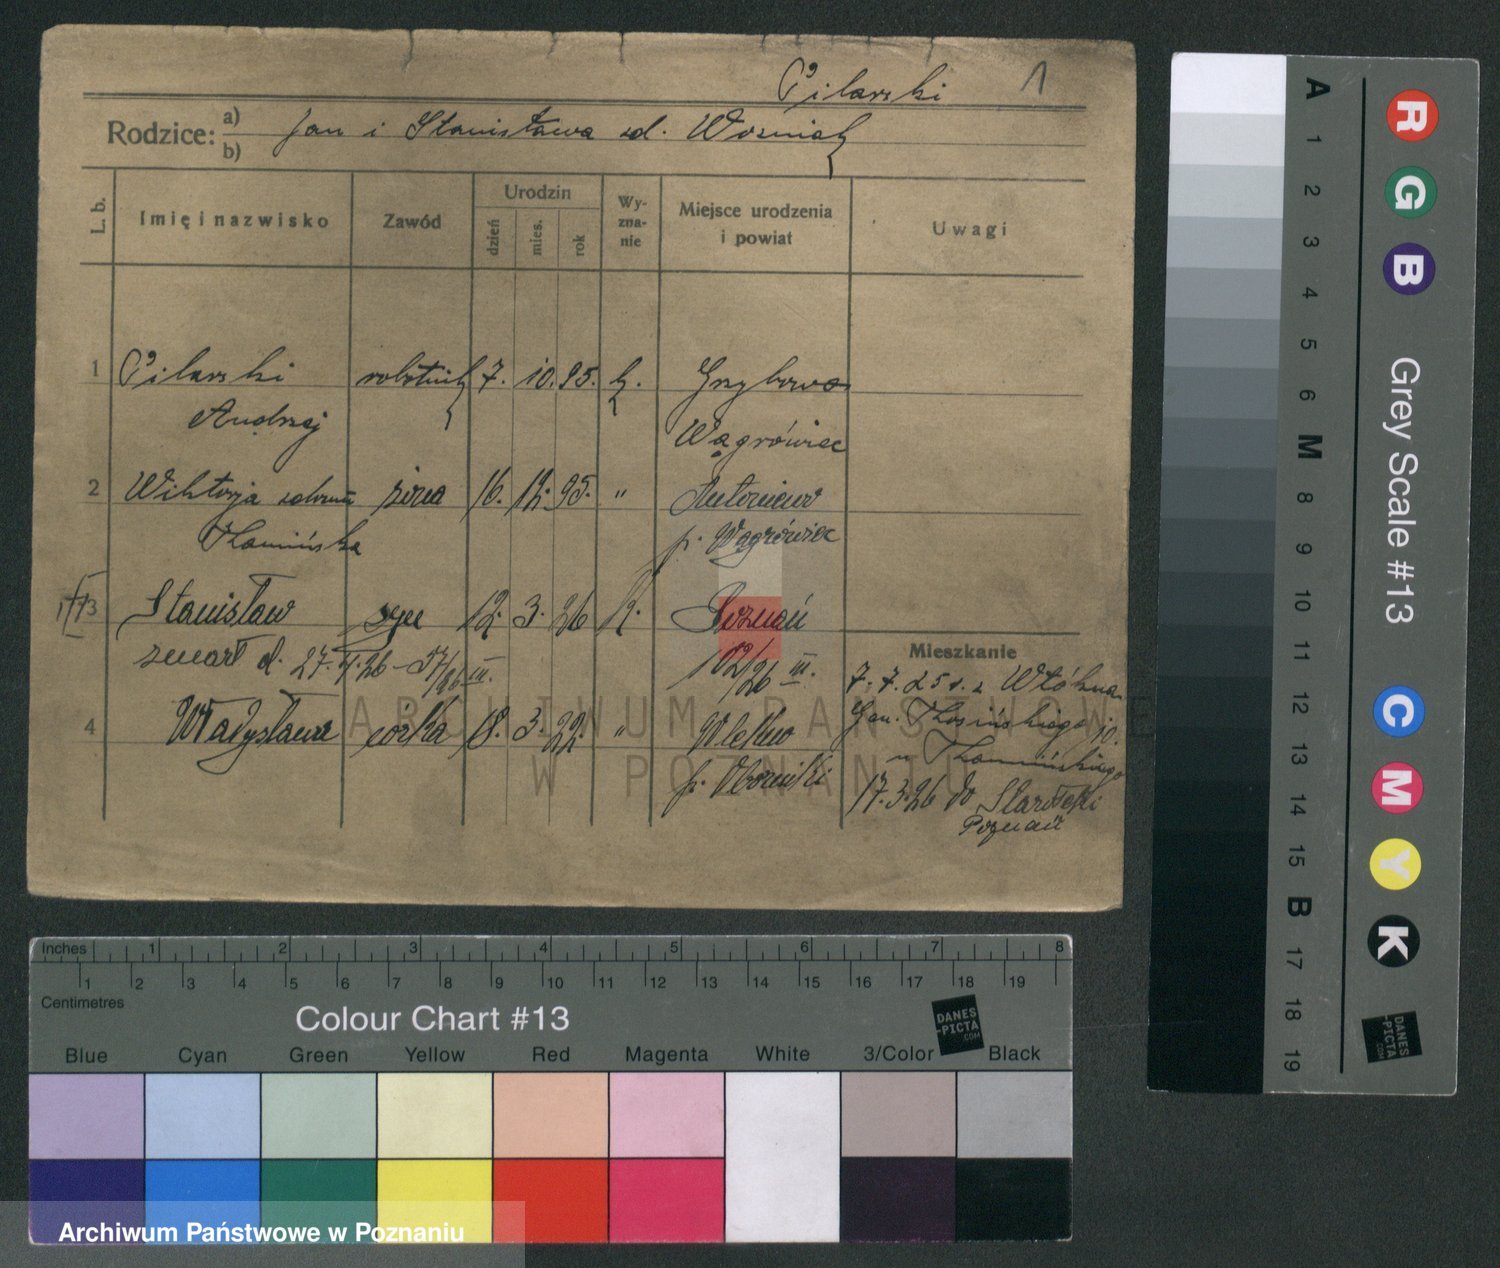 Pilarski 1
Rodzice: a) Jan i Stanisława zd. Woźniak
b)
L. b. Imię i nazwisko Zawód Urodzin dzień mies. rok Wy-zna-nie Miejsce urodzenia i powiat Uwagi
1 Pilarski robotnik 7. 10. 95. k. Grzybowo
Andrzej Wągrówiec
2 Wiktorja żona 16. 12. 95. " Antoniewo
Kamińska p. Wągrówiec
3 Stanisław syn 12. 3. 26 k. Poznań
zmarł d. 27. 26 - 57/26 III. 102/26 III.
Mieszkanie
7. 7. 25 r. z Włókna
4 Władysława córka 18. 3. 22. " Wełna
Kamińskiego
p. Oborniki
17. 3. 26 do Starołęki
Poznań
ARCHIWUM PAŃSTWOWE
W POZNANIU
A 1 2 3 4 5 6 M 8 9 10 11 12 13 14 15 B 17 18 19
Grey Scale #13
R G B
C M Y K
DANES
-PICTA
.COM
Inches 1 2 3 4 5 6 7 8
1 2 3 4 5 6 7 8 9 10 11 12 13 14 15 16 17 18 19
Centimetres
Colour Chart #13
DANES
-PICTA
.COM
Blue Cyan Green Yellow Red Magenta White 3/Color Black
Archiwum Państwowe w Poznaniu